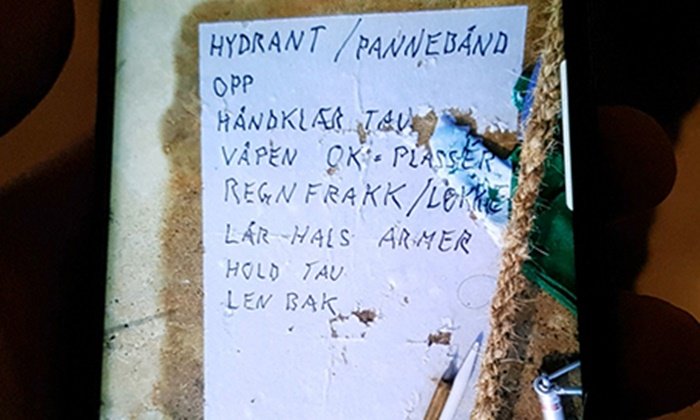 HYDRANT / PANNEBÅND
OPP
HÅNDKLÆR TAU
VÅPEN OK = PLASSER
REGNFRAKK / LØKKE
LÅR HALS ARMER
HOLD TAU
LEN BAK